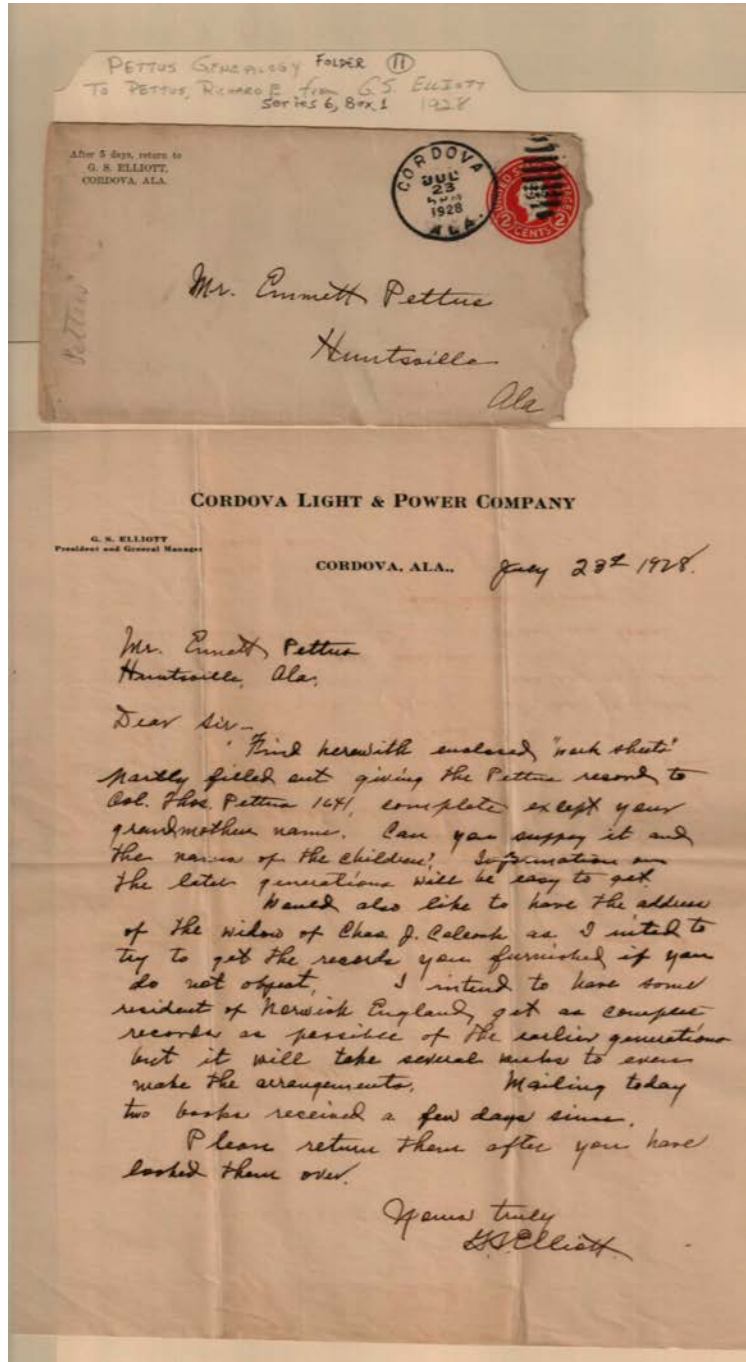 PETTUS GENEALOGY FOLDER 11
TO PETTUS, RICHARD E from G.S. ELLIOTT
Series 6, Box 1 1928
After 5 days, return to
G. S. ELLIOTT,
CORDOVA, ALA.
CORDOVA
JUL
23
1928
ALA.
UNITED STATES POSTAGE
2 CENTS 2
Pettus
Mr. Emmett Pettus
Huntsville
Ala
CORDOVA LIGHT & POWER COMPANY
G. S. ELLIOTT
President and General Manager
CORDOVA, ALA., July 23d 1928.
Mr. Emmett Pettus
Huntsville, Ala.
Dear Sir—
Find herewith enclosed "work sheets"
partly filled out giving the Pettus record to
Col. Thos. Pettus 1641, complete except your
grandmothers name. Can you supply it and
the names of the children? Information on
the later generations will be easy to get.
Would also like to have the address
of the widow of Chas. J. Colcock as I intend to
try to get the records you furnished if you
do not object. I intend to have some
resident of Norwich England, get as complete
records as possible of the earlier generations
but it will take several weeks to even
make the arrangements. Mailing today
two books received a few days since.
Please return them after you have
looked them over.
Yours truly
G.S. Elliott